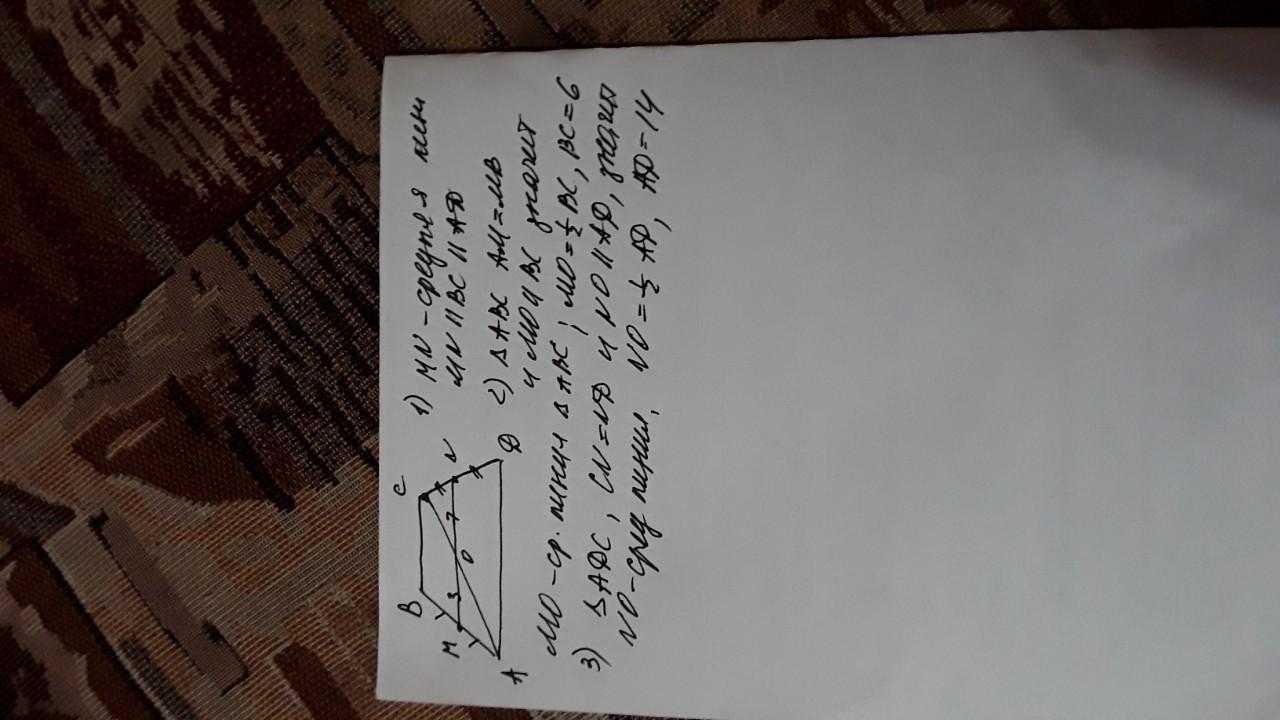 B C
M 3 O 7 N
A D
1) MN - средняя лини
MN || BC || AD
2) Δ ABC AM = MB
и MO || BC значит
MO - ср. линия Δ ABC ; MO = ½ BC, BC = 6
3) Δ ADC, CN = ND и NO || AD, значит
NO - сред линия, NO = ½ AD, AD = 14